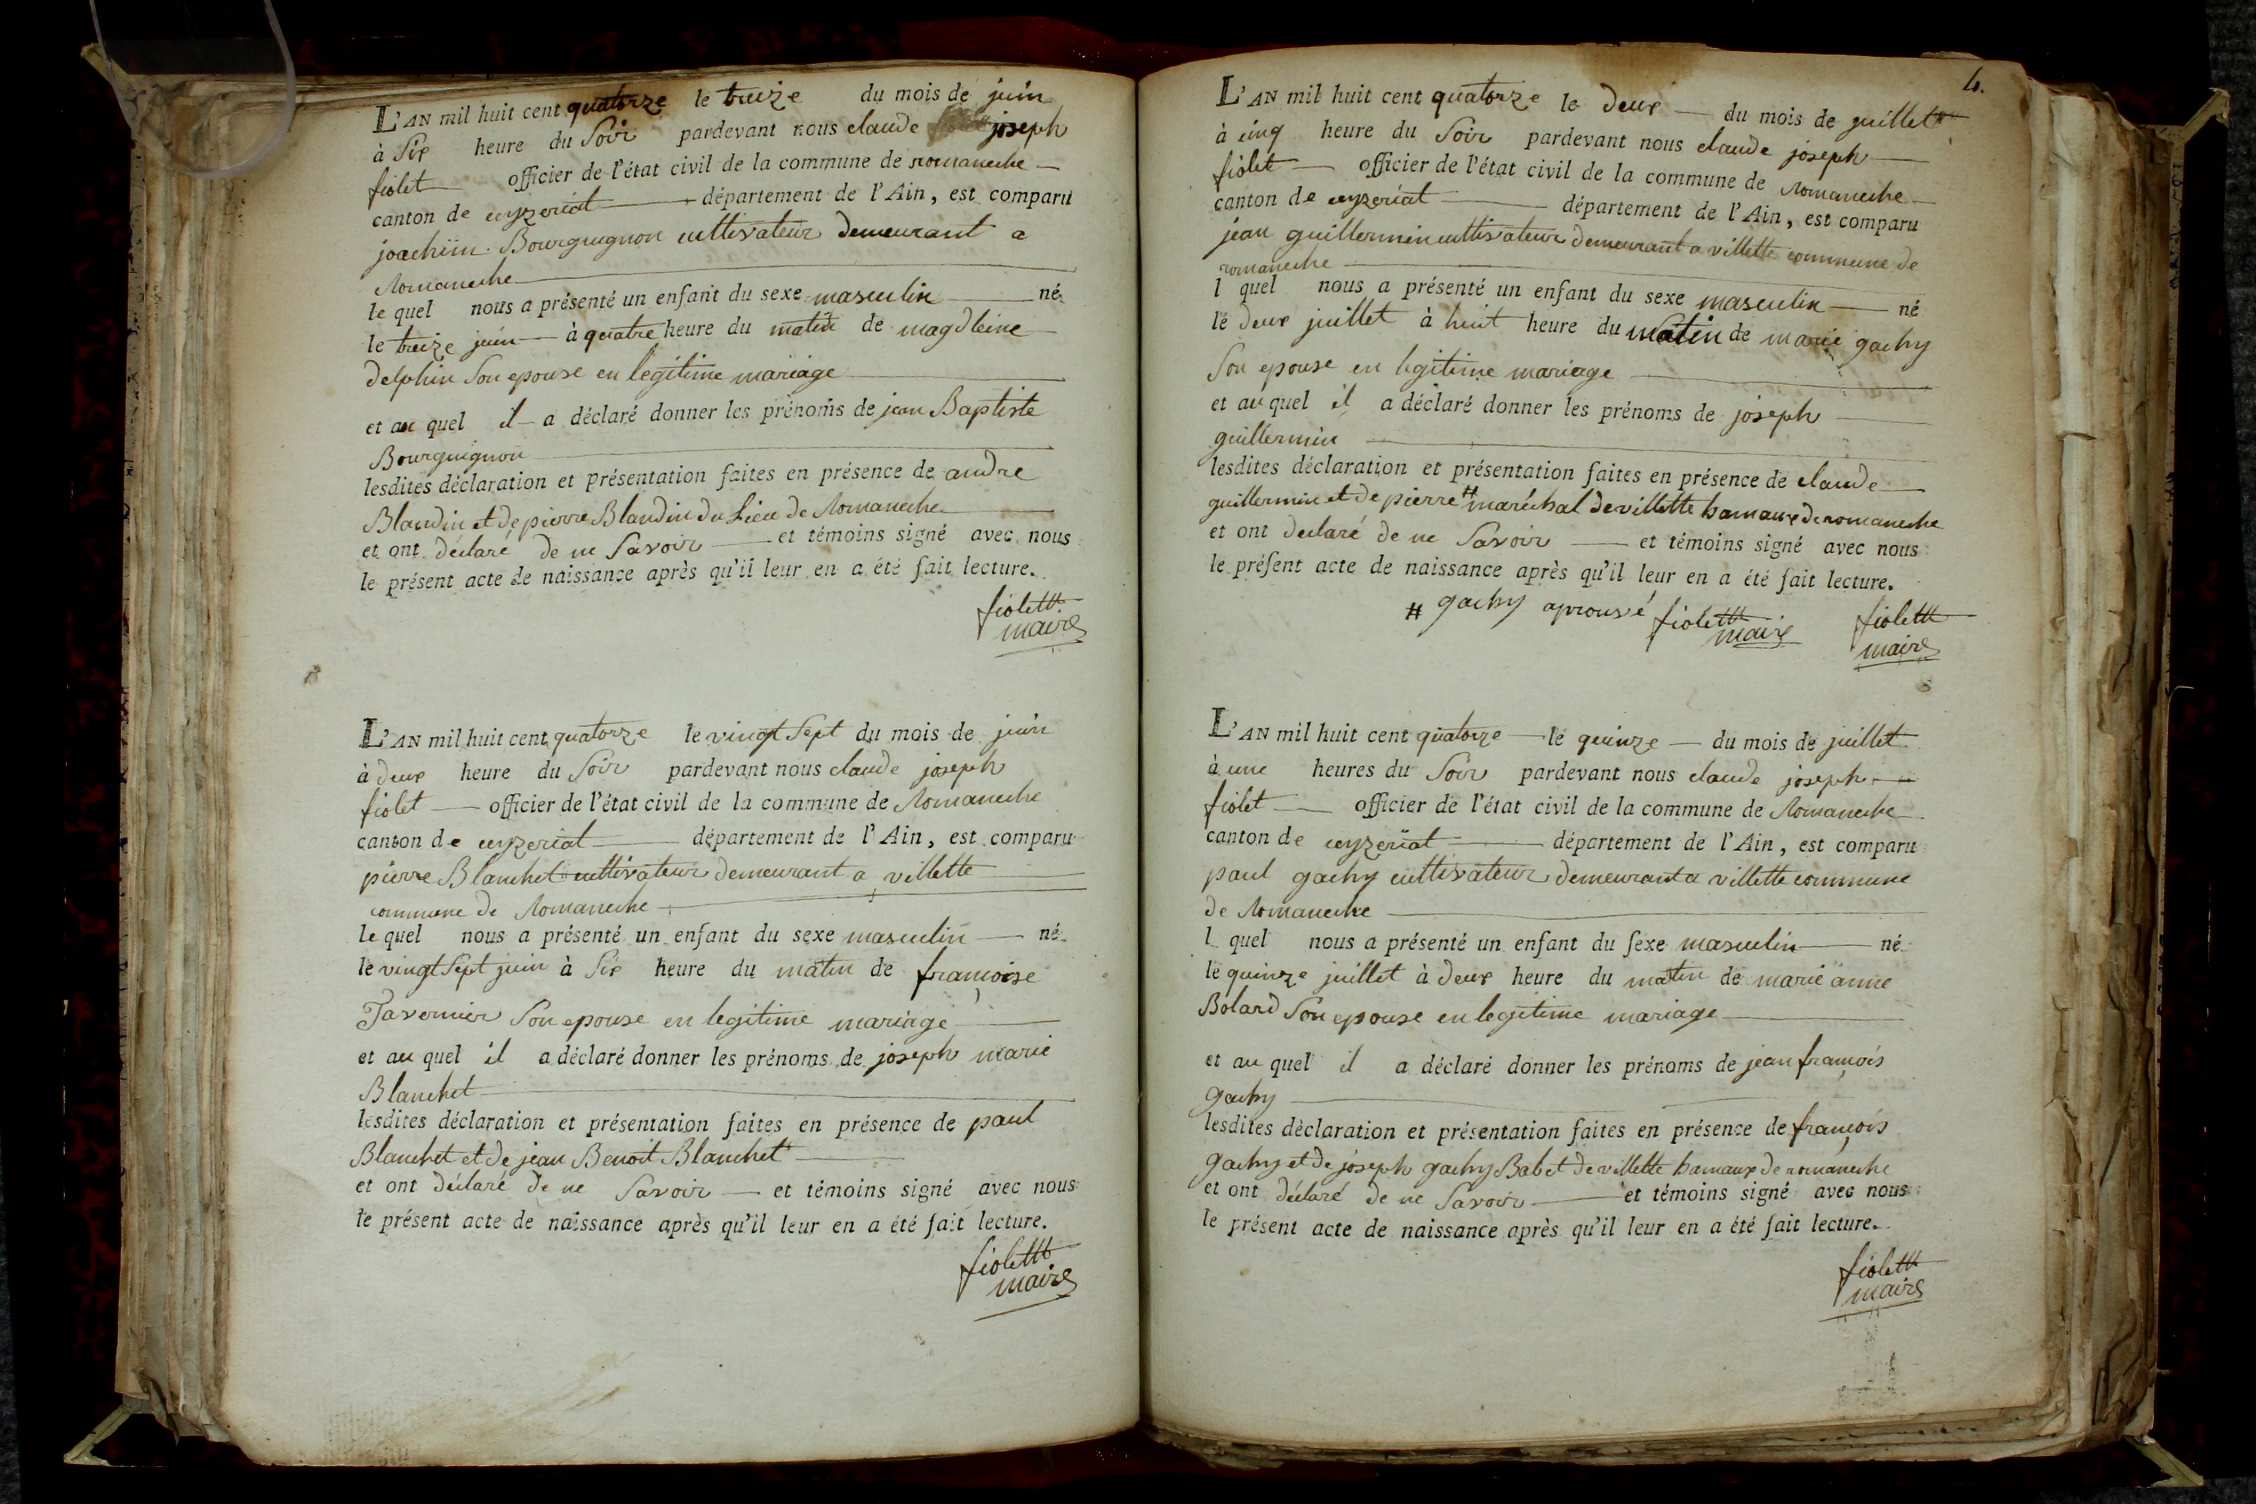 L'AN mil huit cent quatorze le treize du mois de juin
à Six heure du Soir pardevant nous claude joseph
fiolet officier de l'état civil de la commune de romaneche
canton de ceyzeriat département de l'Ain, est comparu
joachim Bourguignon cultivateur demeurant a
Romaneche
le quel nous a présenté un enfant du sexe masculin né
le treize juin à quatre heure du matin de magdleine
delphin Son epouse en legitime mariage
et au quel il a déclaré donner les prénoms de jean Baptiste
Bourguignon
lesdites déclaration et présentation faites en présence de andre
Blandin et de pierre Blandin du Lieu de Romaneche
et ont déclaré de ne Savoir et témoins signé avec nous
le présent acte de naissance après qu'il leur en a été fait lecture.
fiolet
maire
L'AN mil huit cent quatorze le vingt Sept du mois de juin
à deux heure du Soir pardevant nous claude joseph
fiolet officier de l'état civil de la commune de Romaneche
canton de ceyzeriat département de l'Ain, est comparu
pierre Blanchet cultivateur demeurant a villette
commune de Romaneche
le quel nous a présenté un enfant du sexe masculin né
le vingt Sept juin à Six heure du matin de françoise
Tavernier Son epouse en legitime mariage
et au quel il a déclaré donner les prénoms de joseph marie
Blanchet
lesdites déclaration et présentation faites en présence de paul
Blanchet et de jean Benoit Blanchet
et ont déclaré de ne Savoir et témoins signé avec nous
le présent acte de naissance après qu'il leur en a été fait lecture.
fiolet
maire
4.
L'AN mil huit cent quatorze le deux du mois de juillet
à cinq heure du Soir pardevant nous claude joseph
fiolet officier de l'état civil de la commune de Romaneche
canton de ceyzeriat département de l'Ain, est comparu
jean guillermin cultivateur demeurant a villette commune de
romaneche
l quel nous a présenté un enfant du sexe masculin né
le deux juillet à huit heure du matin de marie gachy
Son epouse en legitime mariage
et au quel il a déclaré donner les prénoms de joseph
guillermin
lesdites déclaration et présentation faites en présence de claude
guillermin et de pierre # maréchal de villette hamaux de romaneche
et ont declaré de ne Savoir et témoins signé avec nous
le présent acte de naissance après qu'il leur en a été fait lecture.
# gachy aprouvé fiolet
maire
fiolet
maire
L'AN mil huit cent quatorze le quinze du mois de juillet
à une heures du Soir pardevant nous claude joseph
fiolet officier de l'état civil de la commune de Romaneche
canton de ceyzeriat département de l'Ain, est comparu
paul gachy cultivateur demeurant a villette commune
de Romaneche
l quel nous a présenté un enfant du sexe masculin né
le quinze juillet à deux heure du matin de marie anne
Bolard Son epouse en legitime mariage
et au quel il a déclaré donner les prénoms de jean françois
gachy
lesdites déclaration et présentation faites en présence de françois
gachy et de joseph gachy Babet de villette hamaux de romaneche
et ont déclaré de ne Savoir et témoins signé avec nous
le présent acte de naissance après qu'il leur en a été fait lecture.
fiolet
maire